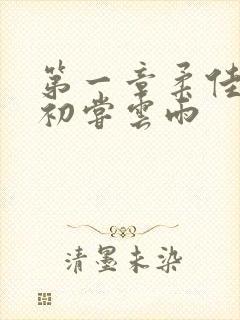 第一章柔佳
初嘗雲雨
清墨未染